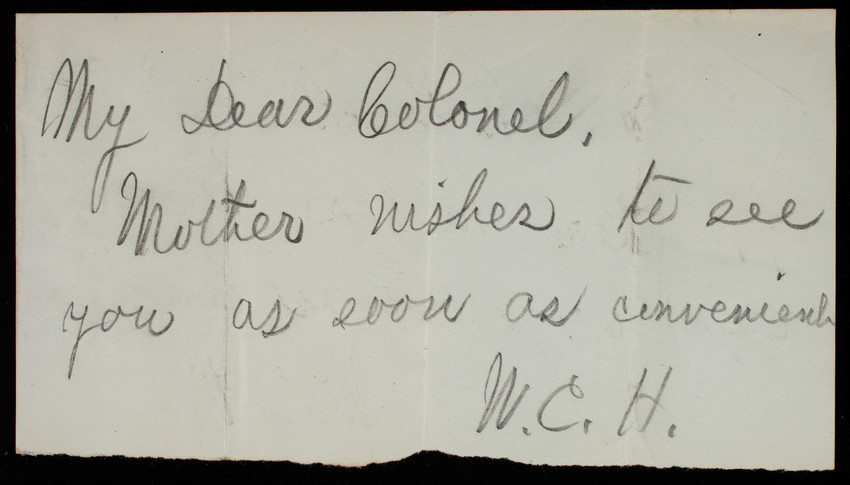 My Dear Colonel,
Mother wishes to see
you as soon as convenient
W. C. H.